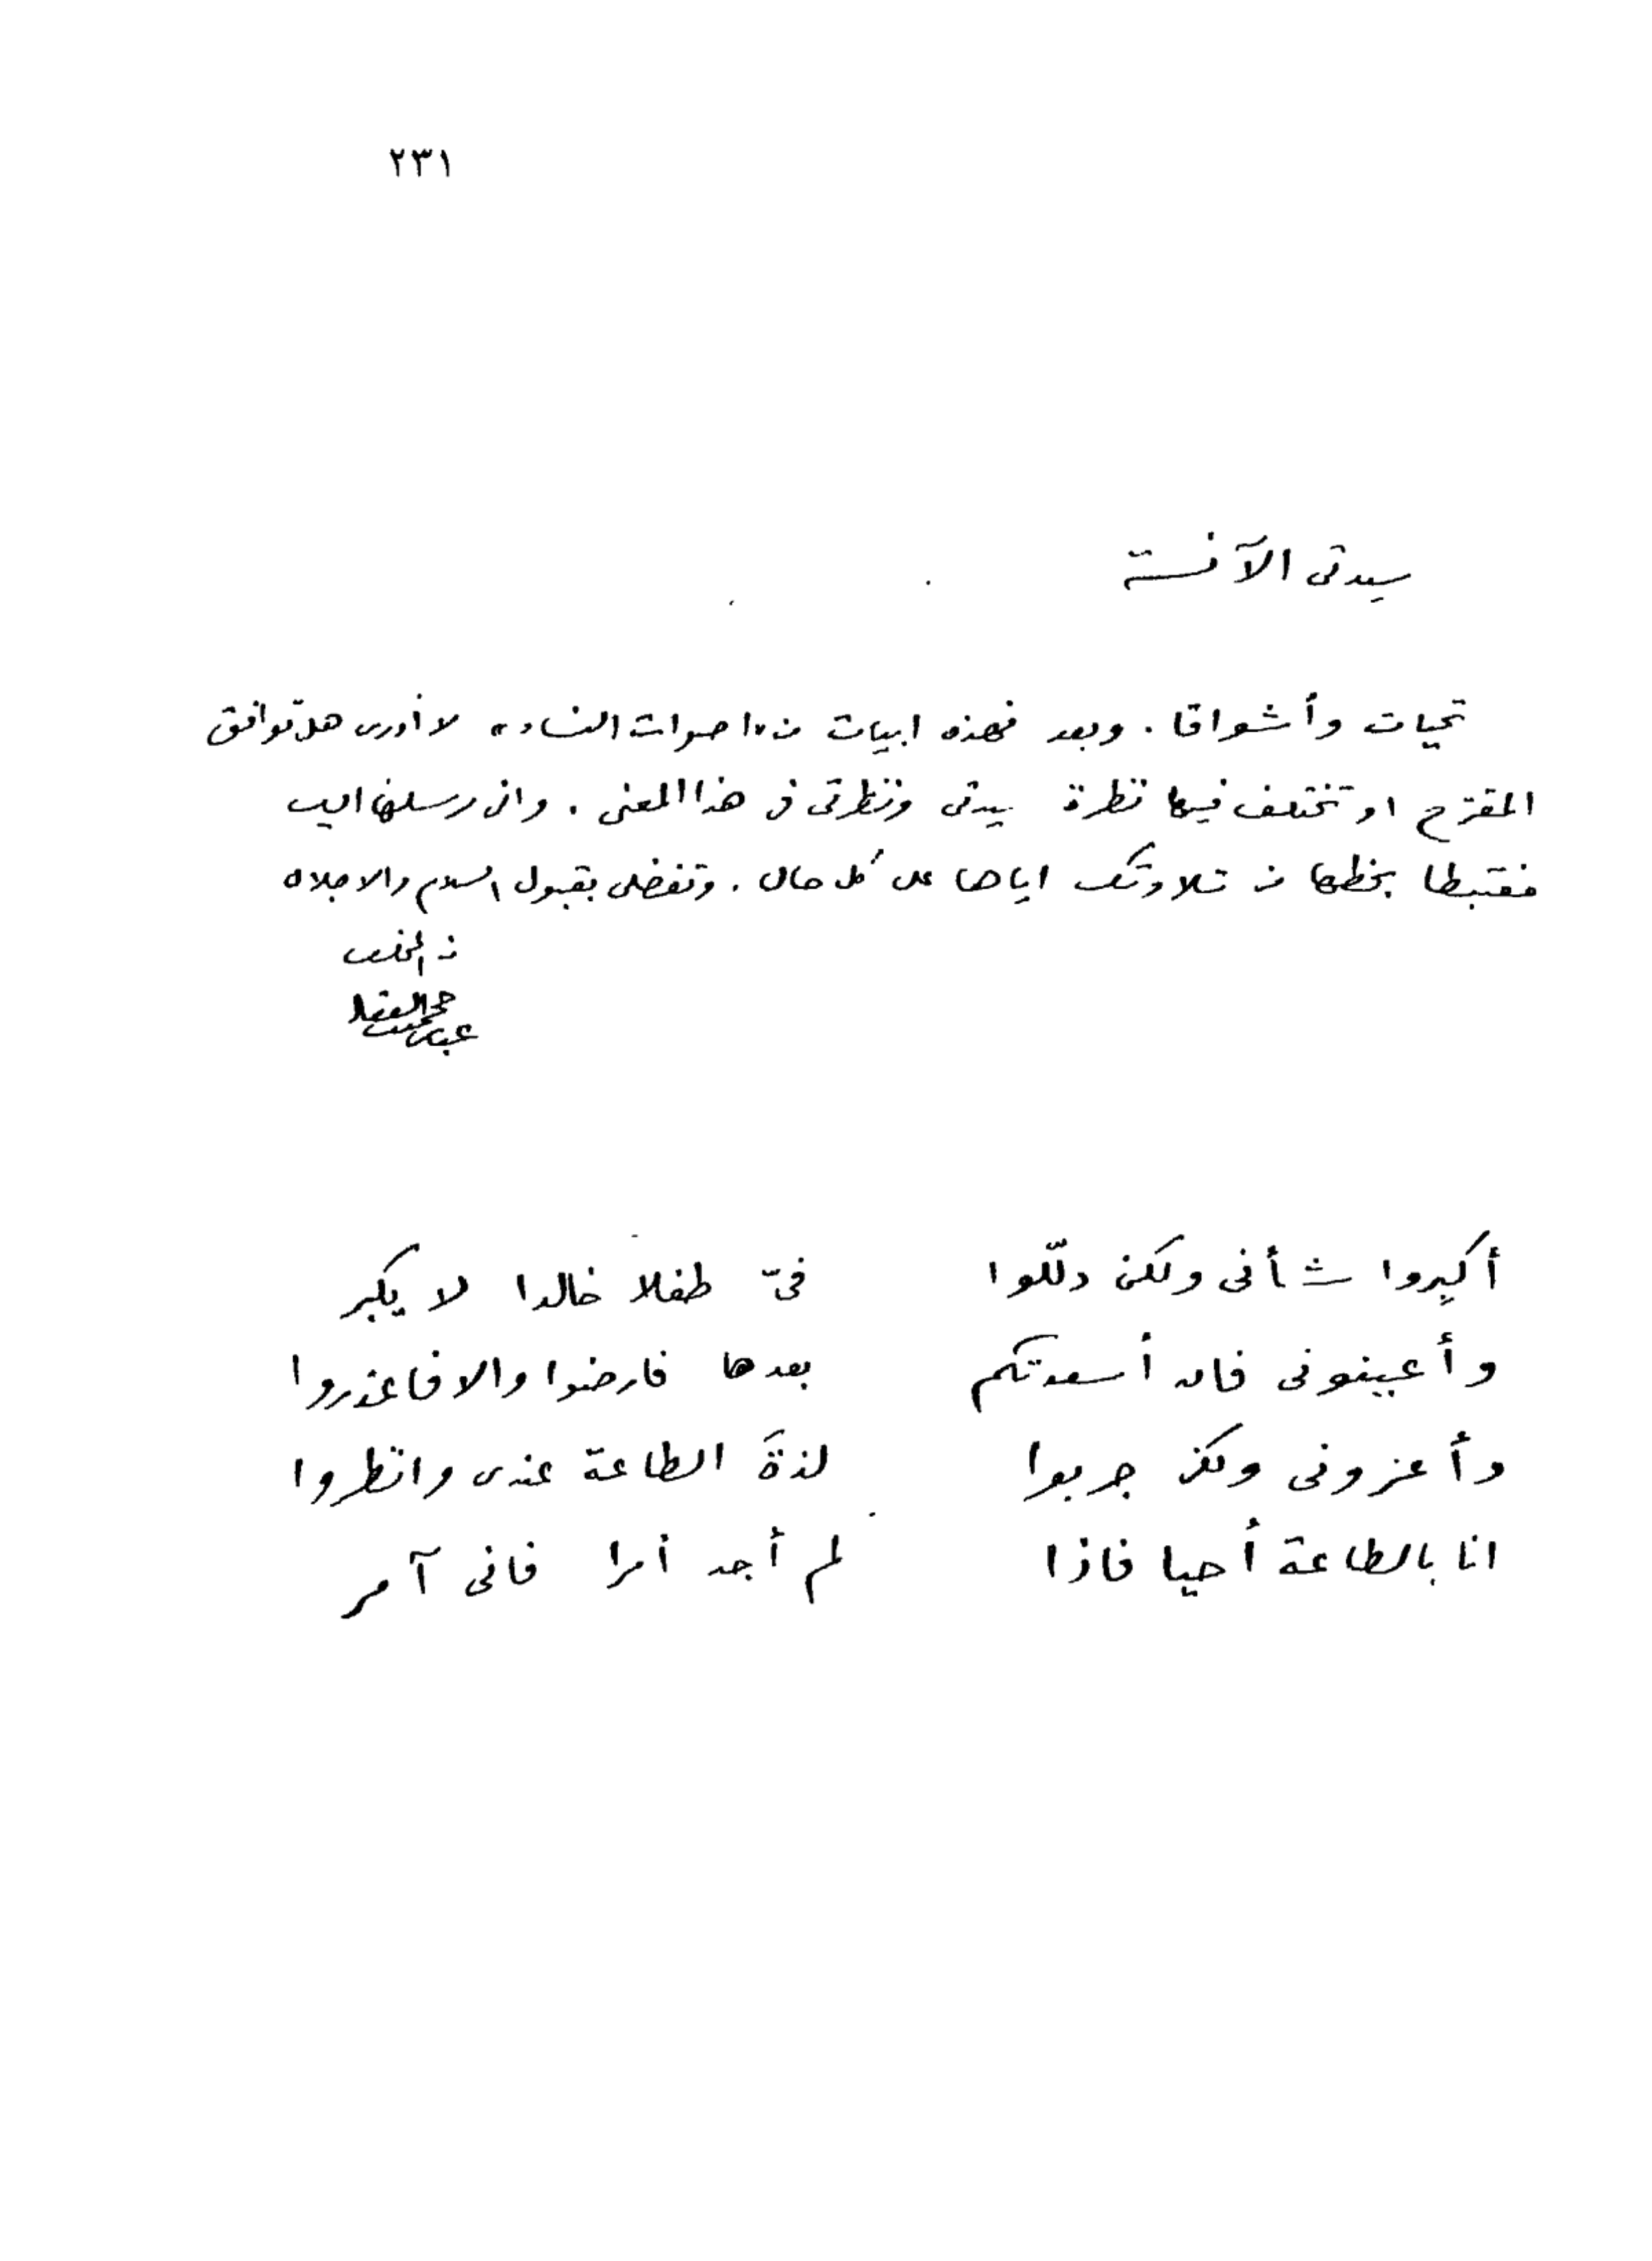 ٢٣١
سيدتى الآنسة
تحيات وأشواقا . وبعد فهذه ابيات من "اصوات النساء" لا أدرى هل توافق
المقترح او تختلف فيها نظرة سيدتى ونظرتى فى هذا المعنى . وانى مرسلها اليك
مغتبطا بحظها من تلاوتك اياها على كل حال . وتفضلى بقبول السلام والاجلال
من المخلص
عباس محمود العقاد
أكبِروا شأنى ولكن دلّلوا فىّ طفلا خالدا لا يكبر
وأعينونى فان أسعدتكم بعدها فارضوا والا فاعذروا
وأعزونى ولكن جربوا لذةَ الطاعة عندى وانظروا
انا بالطاعة أحيا فاذا لم أجد أمرا فانى آمر